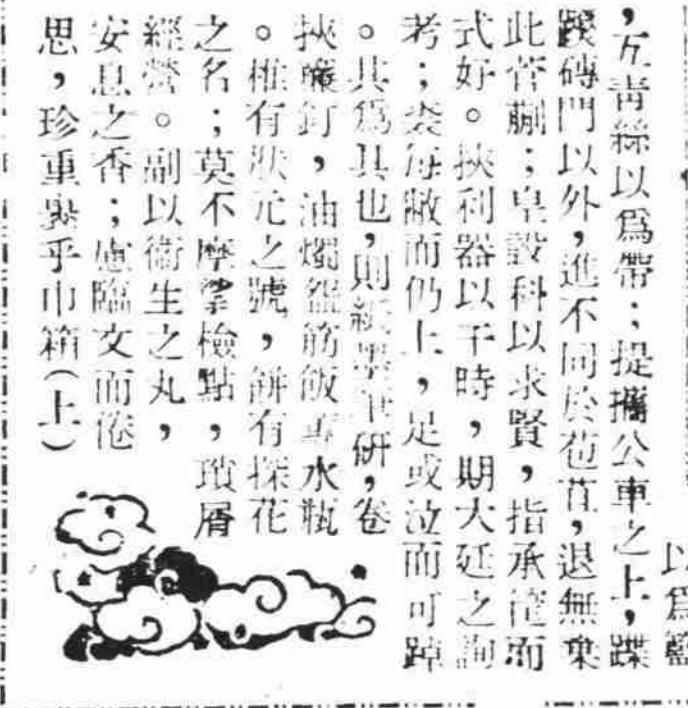 以爲籃
，互青絲以爲帶；提攜公車之上，蹀
躞磚門以外，進不同於苞苴，退無棄
此菅蒯；皇設科以求賢，指承筐而
式好。挾利器以干時，期大廷之詢
考；裘每敝而仍上，足或泣而可踔
。其爲具也，則紙墨筆研，卷
挾釘，油燭飯水瓶
。榷有狀元之號，餅有探花
之名；莫不摩挲檢點，瑣屑
經營。副以衞生之丸，
安息之香；慮臨文而倦
思，珍重乎巾箱（上）